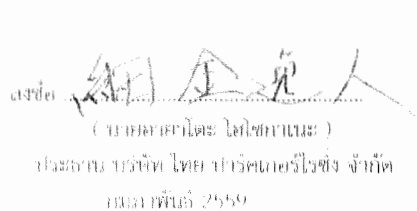 ลงชื่อ 細金達人
( นายอายาโตะ โฮโซกาเนะ )
ประธาน บริษัท ไทย ปาร์คเกอร์ไรซิ่ง จำกัด
กุมภาพันธ์ 2559